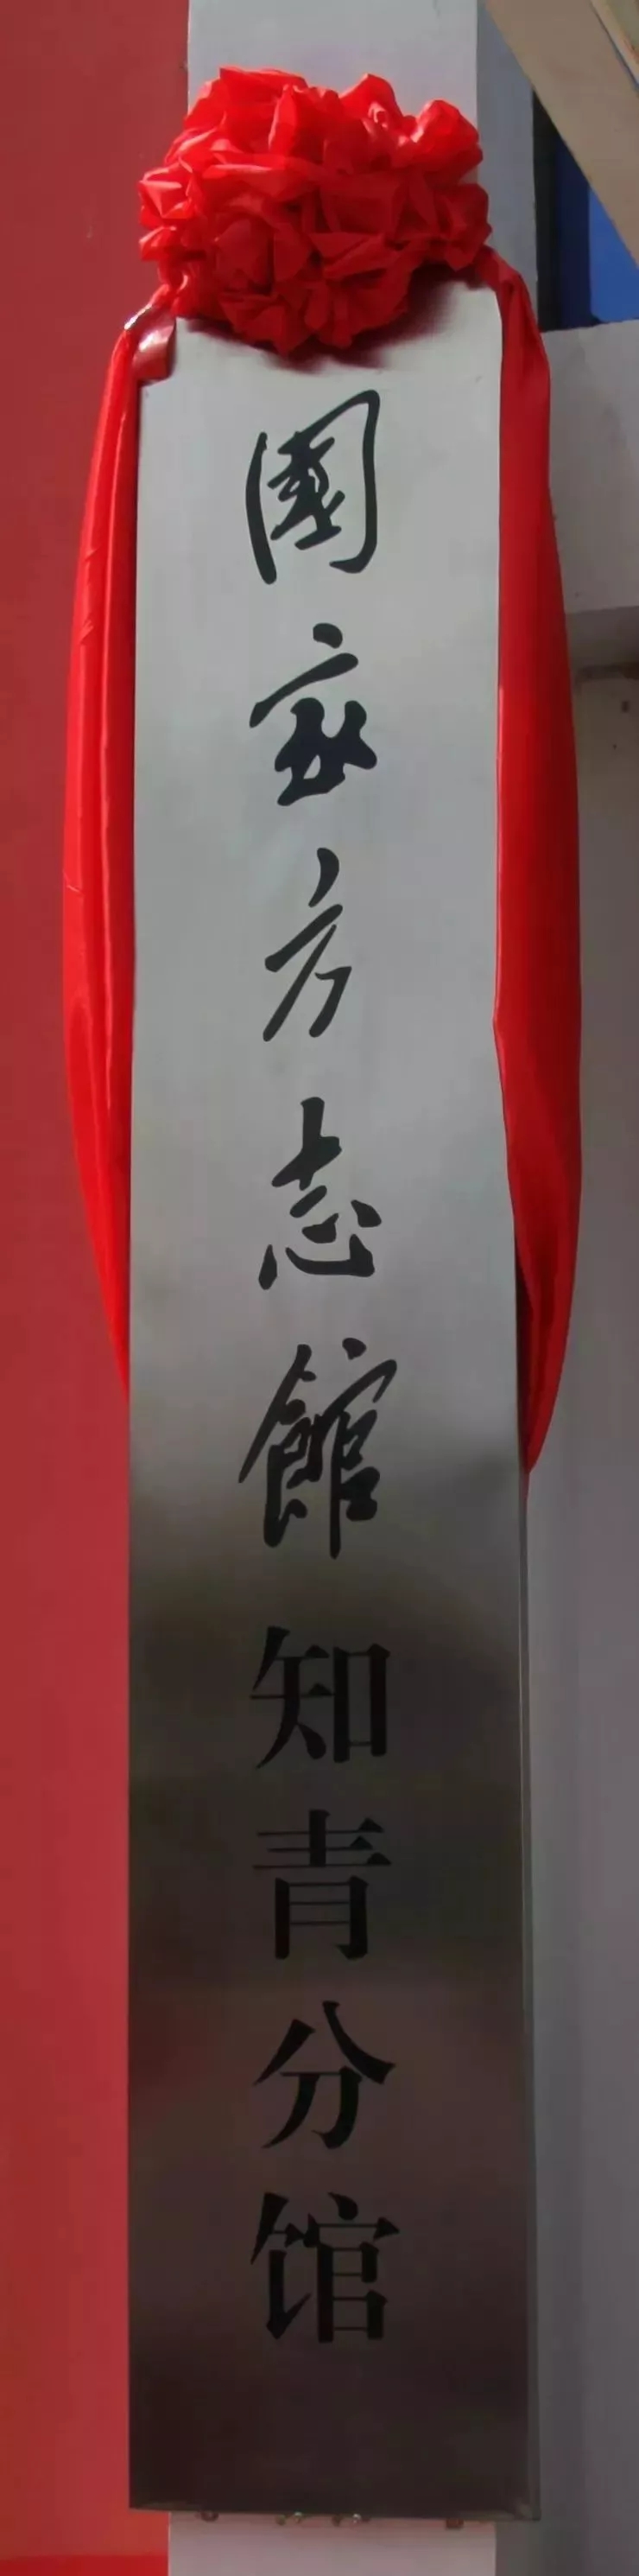 國家方志館知青分馆